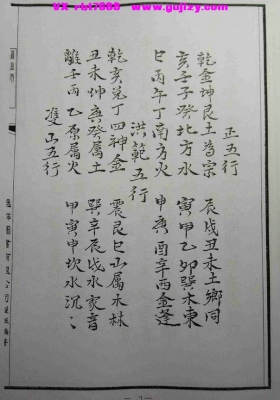 www.gujizy.com
正五行
乾金坤艮土為宗　辰戌丑未土鄉同
亥壬子癸北方水　寅甲乙卯巽木東
巳丙午丁南方火　申庚酉辛西金逢
洪範五行
乾亥兌丁四神金　震艮巳山属木林
丑未坤庚癸属土　巽辛辰戌水家音
離壬丙乙原属火　甲寅申坎水沉〻
雙山五行